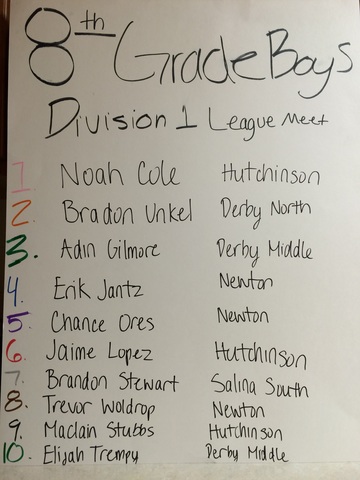 8th Grade Boys
Division 1 League Meet
1. Noah Cole Hutchinson
2. Bradon Unkel Derby North
3. Adin Gilmore Derby Middle
4. Erik Jantz Newton
5. Chance Ores Newton
6. Jaime Lopez Hutchinson
7. Brandon Stewart Salina South
8. Trevor Woldrop Newton
9. Maclain Stubbs Hutchinson
10. Elijah Trempy Derby Middle